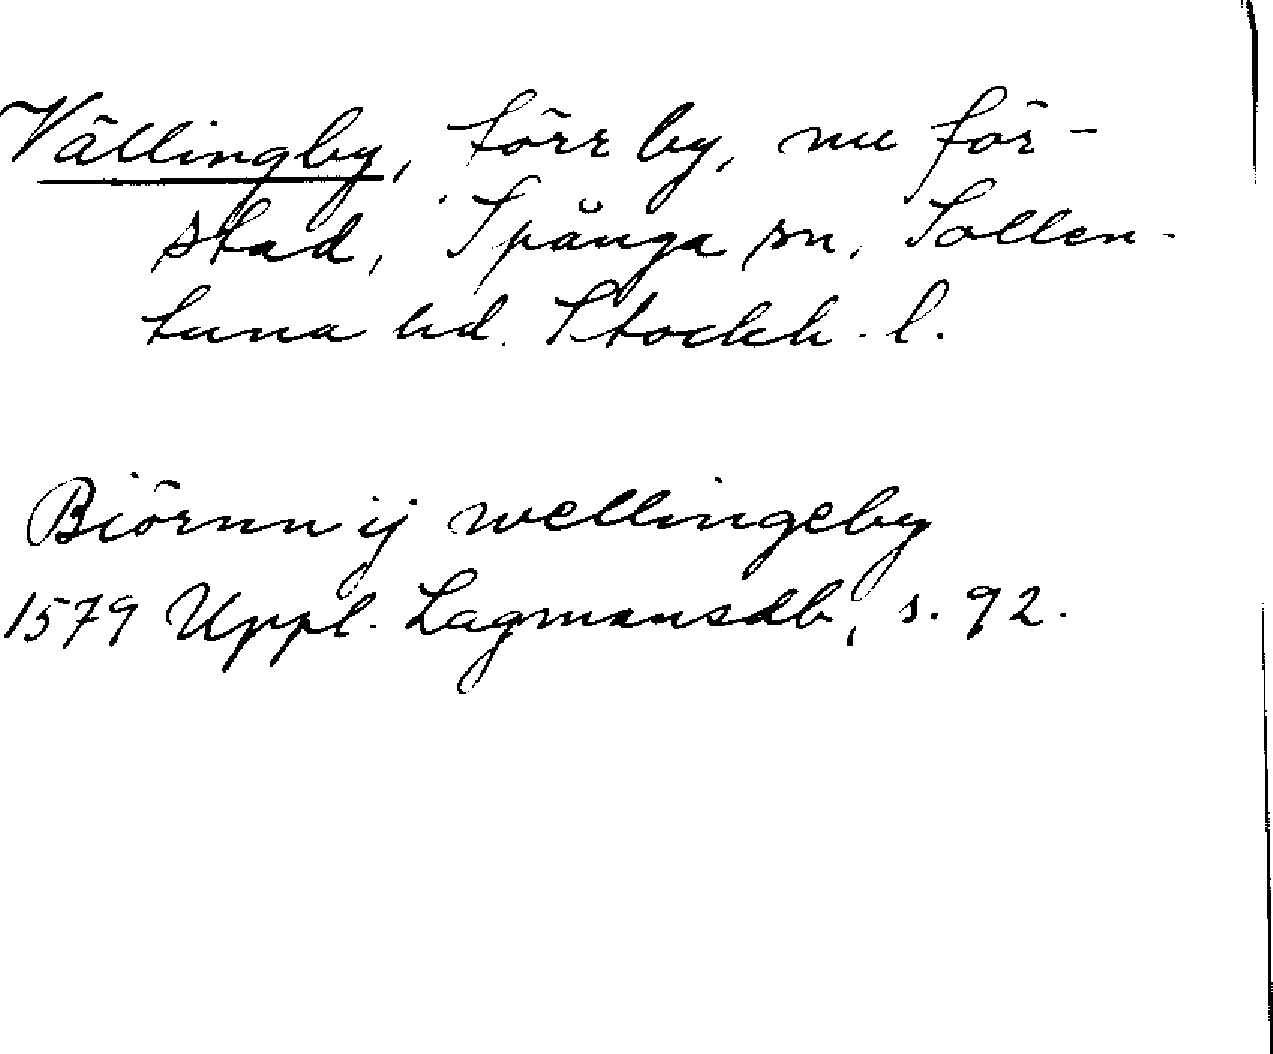 Vällingby, förr by, nu för-
stad, Spånga sn, Sollen-
tuna hd. Stockh. l.
Biörnn ij wellingeby
1579 Uppl. Lagmansdb, s. 92.